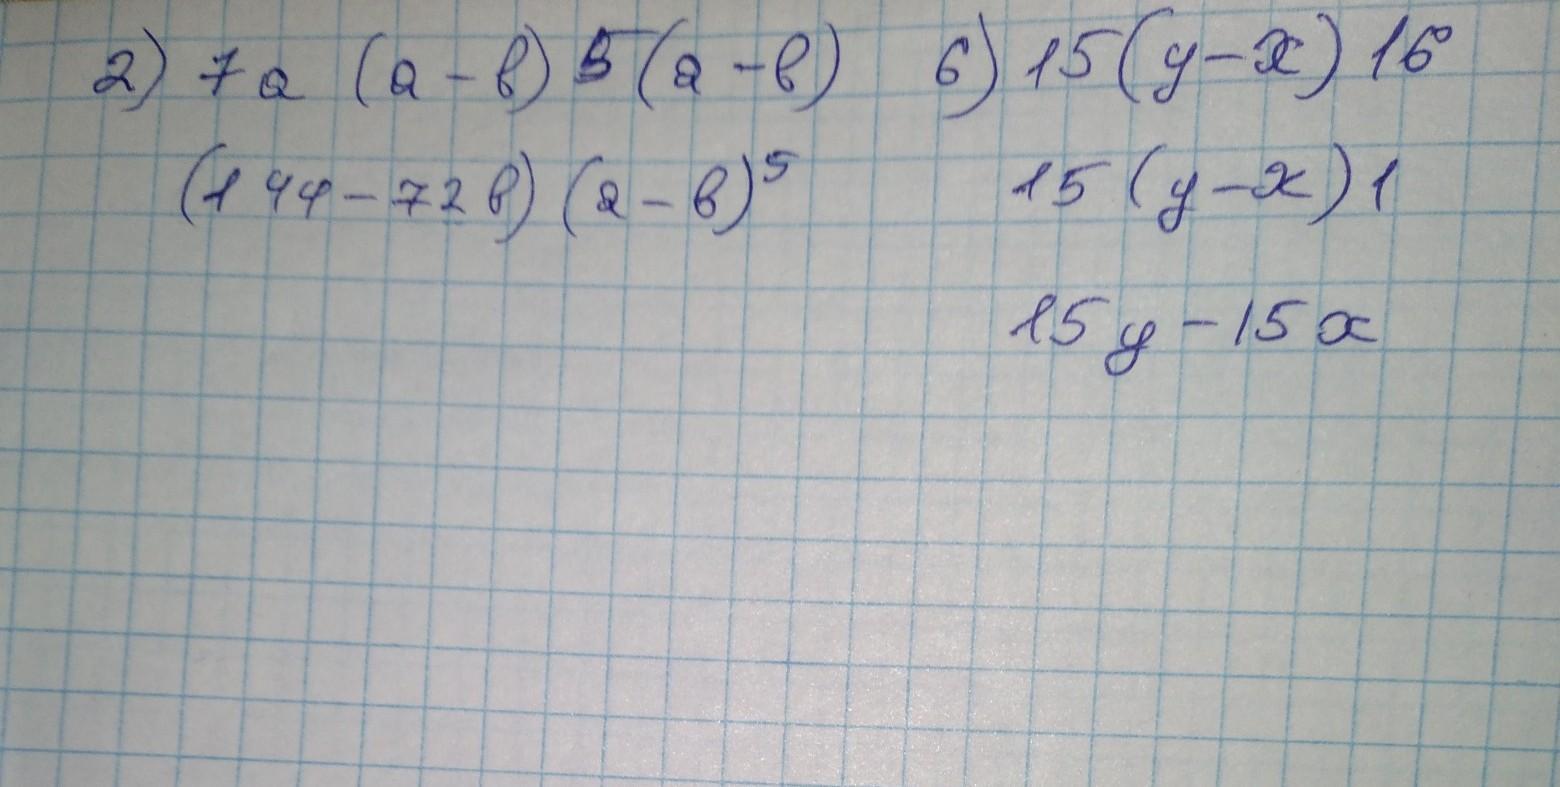 2) 7a (a-b) 5(a-b) 6) 15(y-x) 16
(144-72b) (a-b)⁵ 15 (y-x) 1
15y-15x